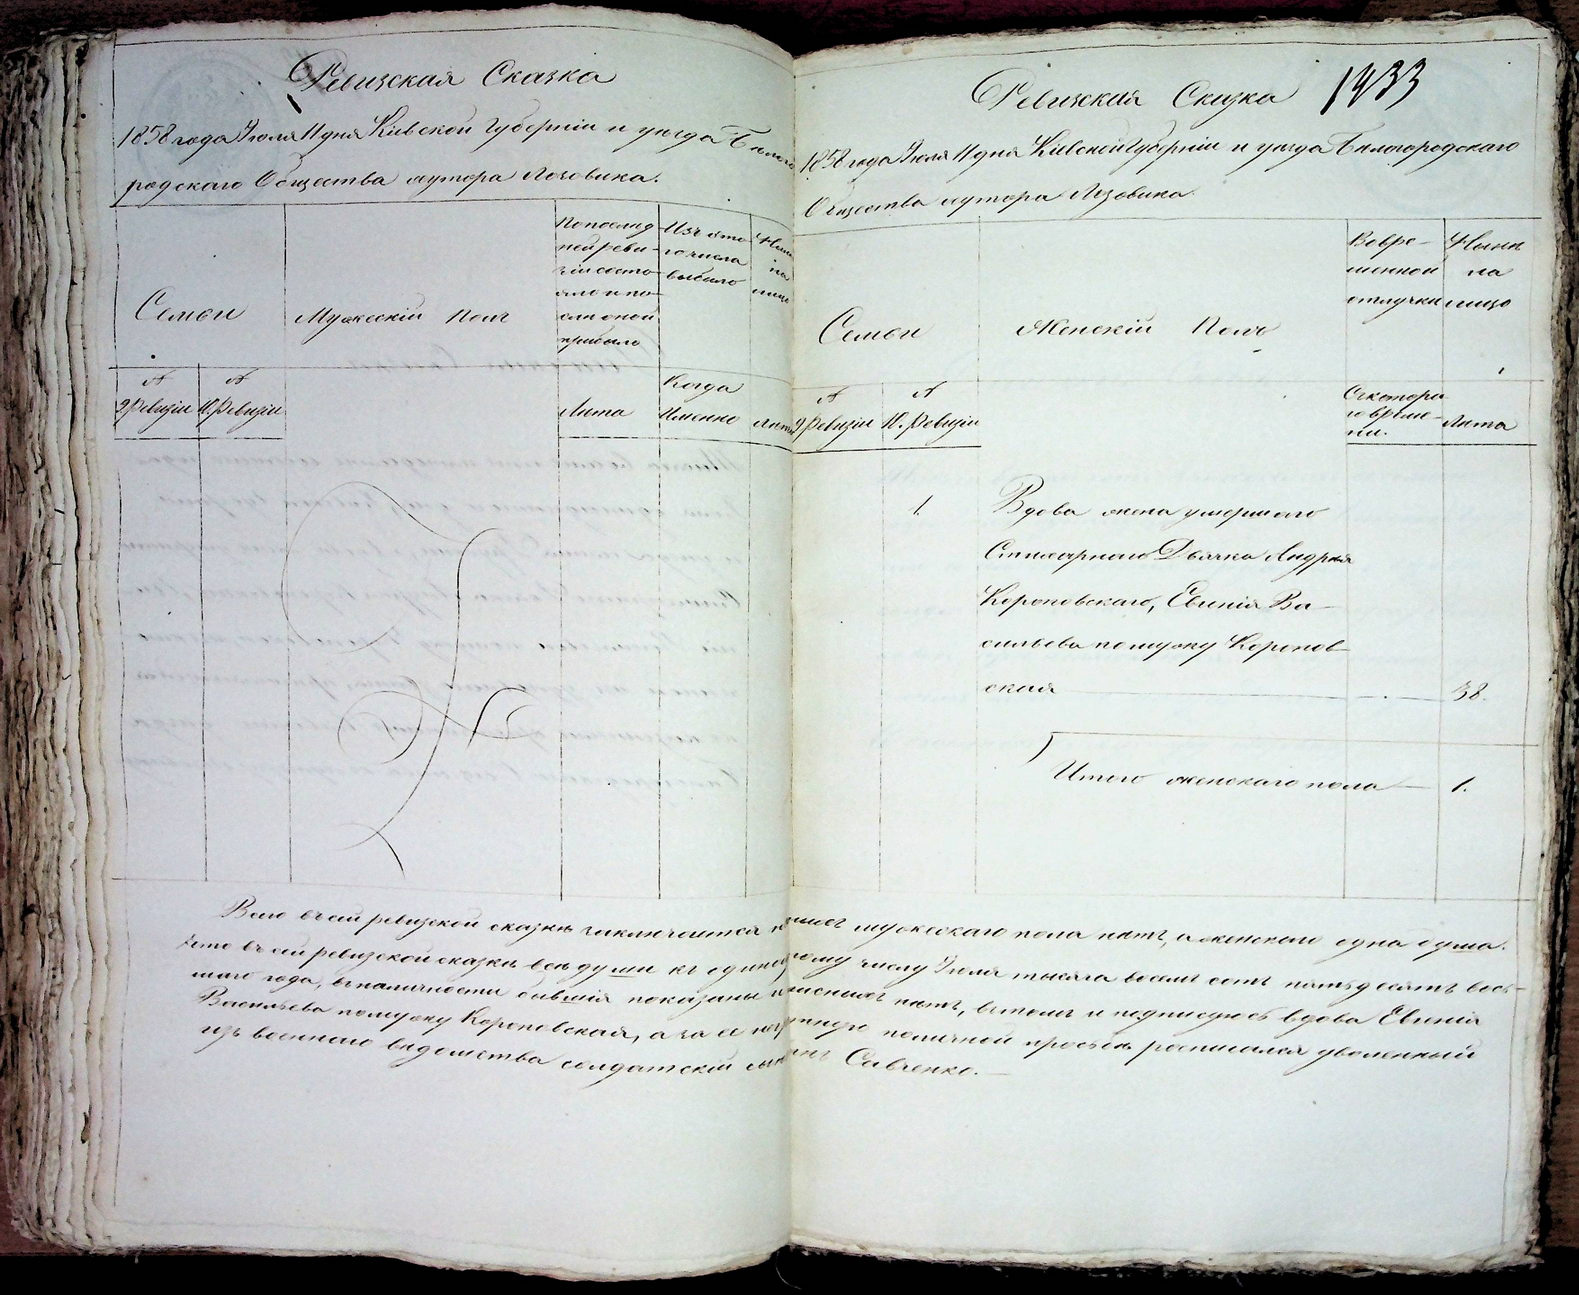 Ревизская Сказка
1858 года Июля 11 дня Кіевской Губерніи и уезда Бѣлого
родскаго Общества хутора Лозовика.
Семьи
Мужескій Полъ
По послѣд
ней реви-
зіи состо-
яло и по-
сли оной
прибыло
Изъ это
го числа
выбыло
Нынѣ
на
лицо
№ 9 Ревизіи
№ 10. Ревизіи
Лѣта
Когда
Именно
Лѣта
Ревизская Сказка
1433
1858 года Июля 11 дня Кіевской Губерніи и уезда Бѣлогородскаго
Общества хутора Лозовика
Семьи
Женскій Полъ
Во вре-
менной
отлучки
Нынѣ
на
лицо
№ 9 Ревизіи
№ 10. Ревизіи
Съ котора
го време-
ни.
Лѣта
1.
Вдова жена умершаго
Дьячка Андрея
Короповскаго, Евгенія Ва-
сильева по мужу Коропов-
ская 38.
Итого женскаго пола 1.
Всего въ сей ревизской сказкѣ заключается мужескаго пола нѣтъ, а женскаго одна душа.
Что въ сей ревизской сказкѣ всѣ души къ числу Июля тысяча восемь сотъ пятьдесятъ вось-
маго года, въ наличности бывшія показаны и нѣтъ, въ томъ и подписуюсь вдова Евгенія
Васильева по мужу Короповская, а за ее личной просьбѣ росписался уволенный
изъ военнаго вѣдомства солдатскій сынъ Савченко.